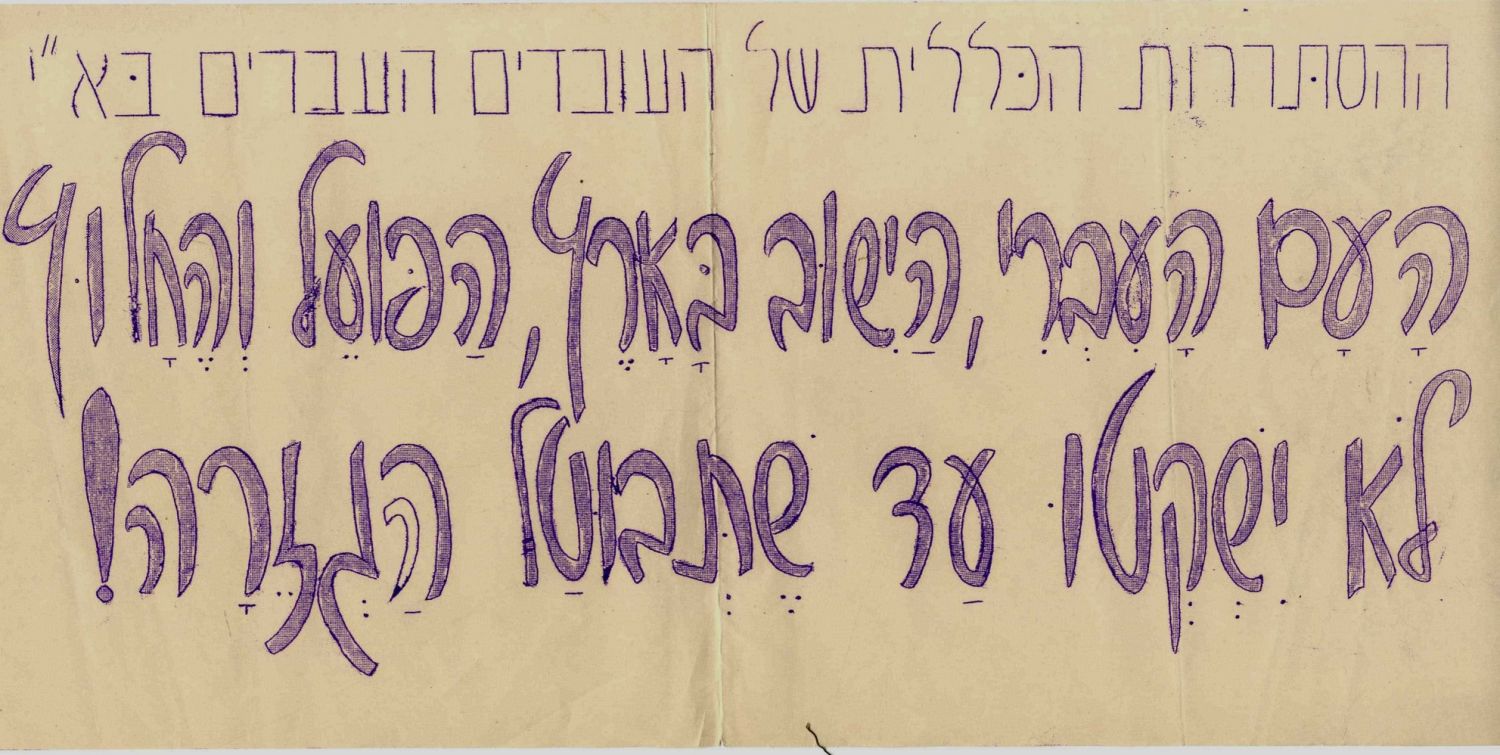 ההסתּדרות הכּללית של העובדים העברים בּא״י
הָעָם הָעִבְרִי, הַיִשוּב בָּאָרֶץ, הַפּוֹעֵל וְהֶחָלוּץ
לֹא יִשְׁקְטוּ עַד שֶׁתְּבוּטַל הַגְזֵרָה!